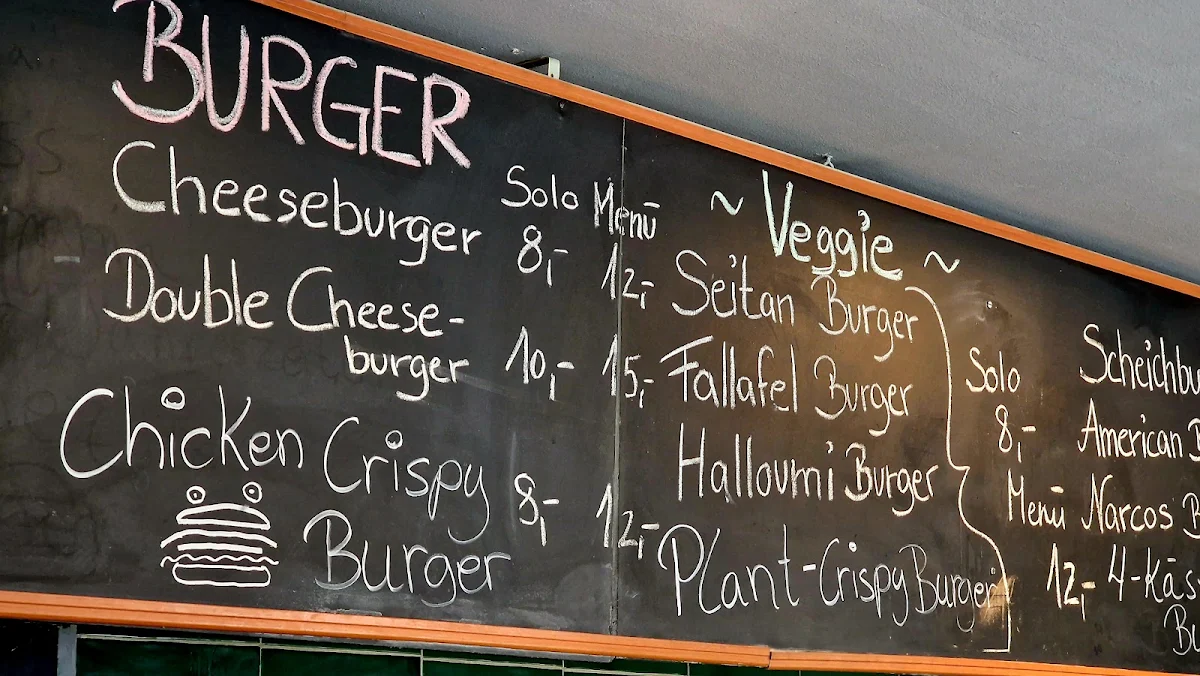 BURGER
Solo Menū
Cheeseburger 8,- 12,-
Double Cheese-
burger 10,- 15,-
Chicken Crispy
Burger 8,- 12,-
~ Veggie ~
Seitan Burger
Fallafel Burger
Halloumi Burger
Plant-Crispy Burger
Solo
8,-
Menü
12,-
American
Narcos